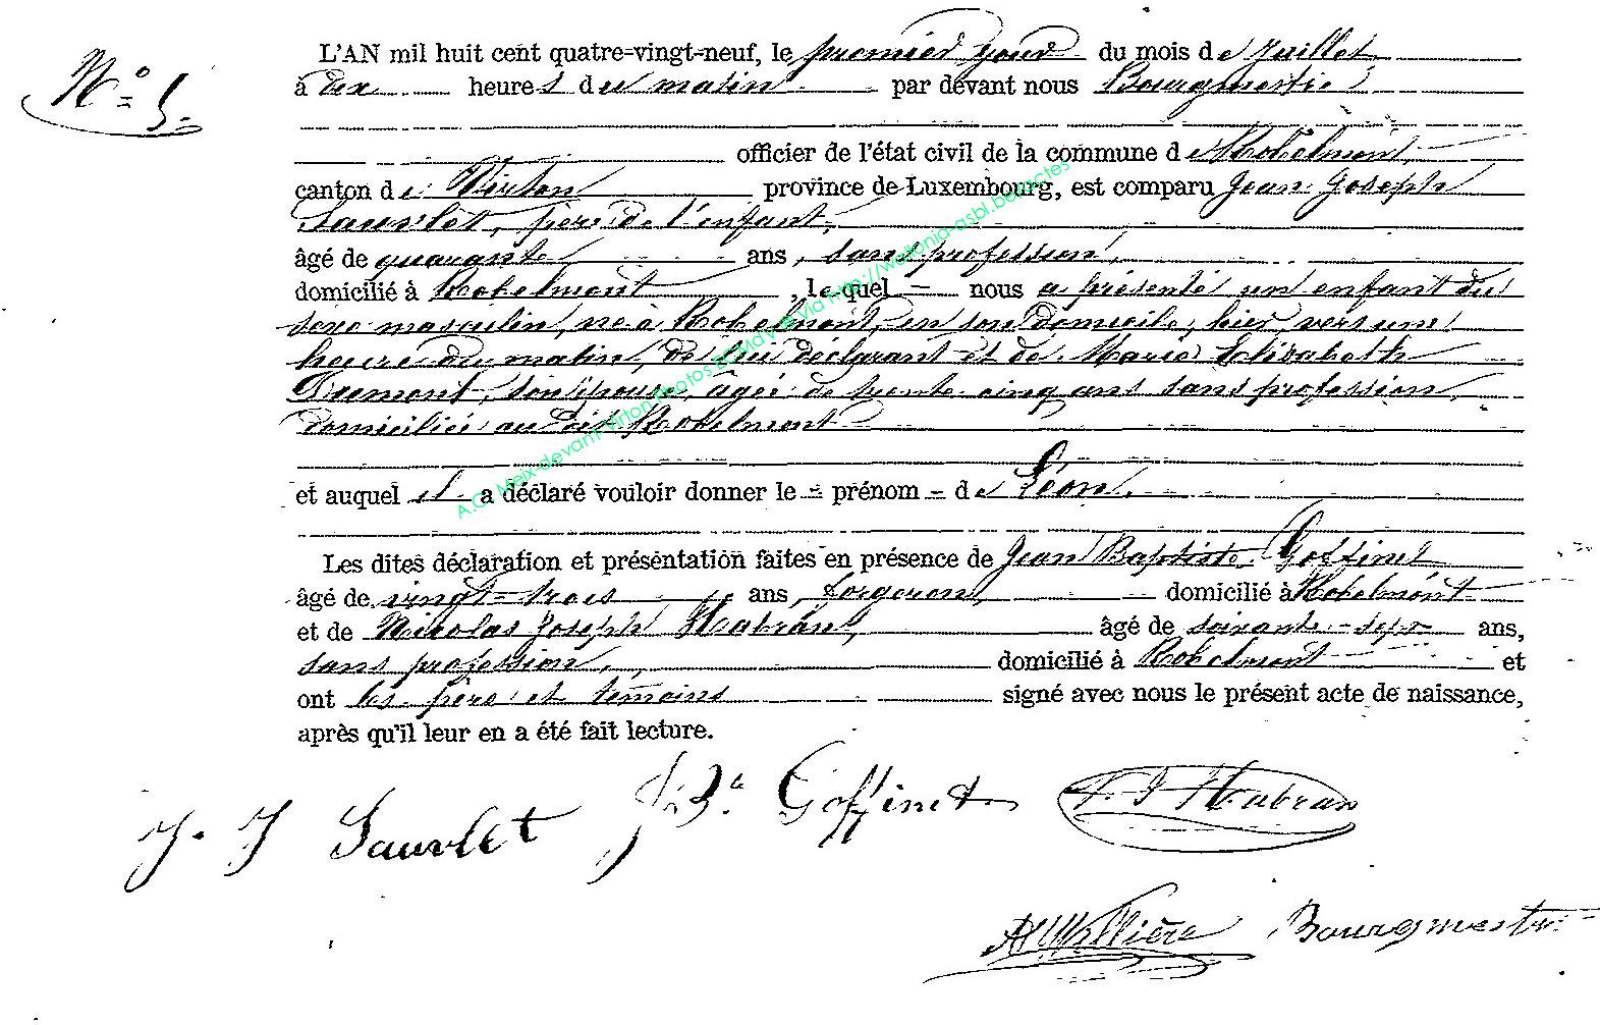 N° 5.
L'AN mil huit cent quatre-vingt-neuf, le premier jour du mois de Juillet
à dix heures du matin par devant nous Bourgmestre
officier de l'état civil de la commune de Robelmont
canton de Virton province de Luxembourg, est comparu Jean Joseph
Sauvlet, père de l'enfant,
âgé de quarante ans, sans profession,
domicilié à Robelmont, lequel nous a présenté un enfant du
sexe masculin, né à Robelmont, en son domicile, hier, vers une
heure du matin, de lui déclarant et de Marie Elisabeth
Dumont, son épouse, âgée de trente cinq ans sans profession,
domiciliée au dit Robelmont
et auquel il a déclaré vouloir donner le prénom de Léon.
Les dites déclaration et présentation faites en présence de Jean Baptiste Goffinet
âgé de vingt-trois ans, forgeron, domicilié à Robelmont
et de Nicolas Joseph Habran, âgé de soixante-sept ans,
sans profession, domicilié à Robelmont et
ont les père et témoins signé avec nous le présent acte de naissance,
après qu'il leur en a été fait lecture.
J. J Sauvlet J. B. Goffinet N. J Habran
Bourgmestre
A.C. Meix-devant-Virton Photos via http://wallonia-asbl.be/actes